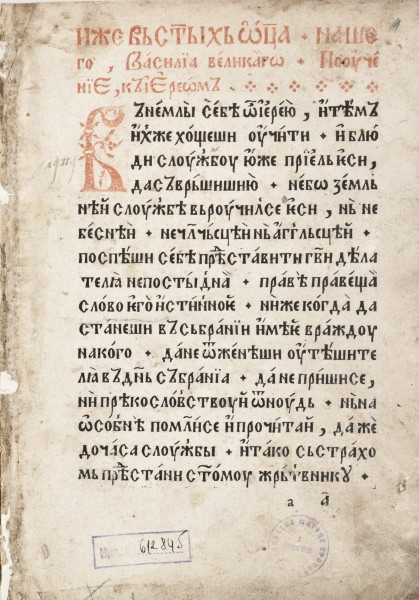 иже въст҃ыхь ѿц҃а · наше
го , Василїа великаго · Поꙋче
нїе , къ їереѡмь ·
Въне́мли сѐбѣ ѽїере́ю , и҆тѣмъ
и҆́хже хо́щеши ѹ҆чи́ти · и҆блю
ди слоу́жбоу ю҆́же прїе́ль є҆си̏ ,
да съвръ́шишию · не́бѡ зе́мль
нѣ́й слоу́жбѣ въроучи́лсе є҆си̏ , нь не
бе́снѣй · нечл҃чьсцѣ́й нь а҆́гг҃льсцѣ́й ·
поспѣ́ши се́бѐ прѣ́ставити гв҃и дѣ́ла
телꙗ̀ непосты́дна · пра́вѣ пра́веща
сло́во е҆го̀ и҆́стинное · ни́же когда̀ да
ста́неши въ събра́нїи и҆мѣ́е враждоу̀
на кого̀ · да не ѿже́неши ѹ҆тѣ́шите
лꙗ̀ въ дн҃ь събра́нїа · да не при́шисе ,
ни прѣ́косло́вствоуи ѿноудь · нь на
ѡ҆со́бнѣ помли́се и҆прочи́тай , да́же
до ча́са слоу́жбы · и҆та́ко съ стра́хо
мь прѣ́стани ст҃о́моу жрь́твникꙋ ·
а а҃
612845